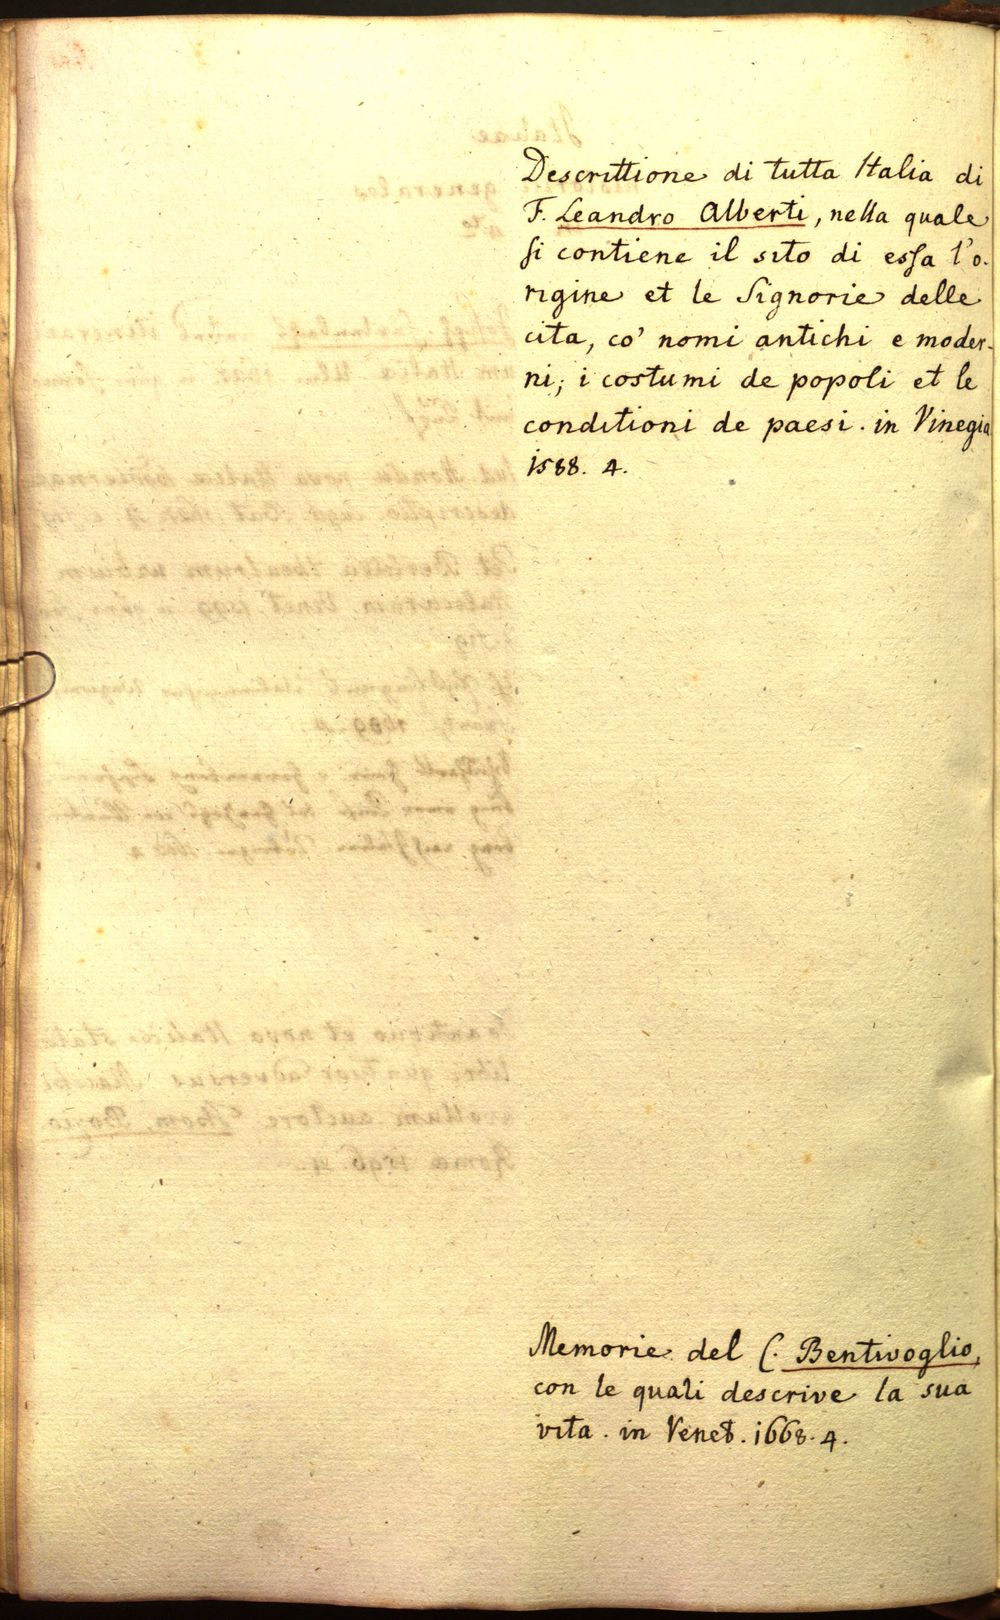 Descrittione di tutta Italia di
F. Leandro Alberti, nella quale
si contiene il sito di essa l'o-
rigine et le Signorie delle
cita, co' nomi antichi e moder-
ni; i costumi de popoli et le
conditioni de paesi. in Vinegia
1588. 4.
Memorie del C. Bentivoglio,
con le quali descrive la sua
vita. in Venet. 1668. 4.